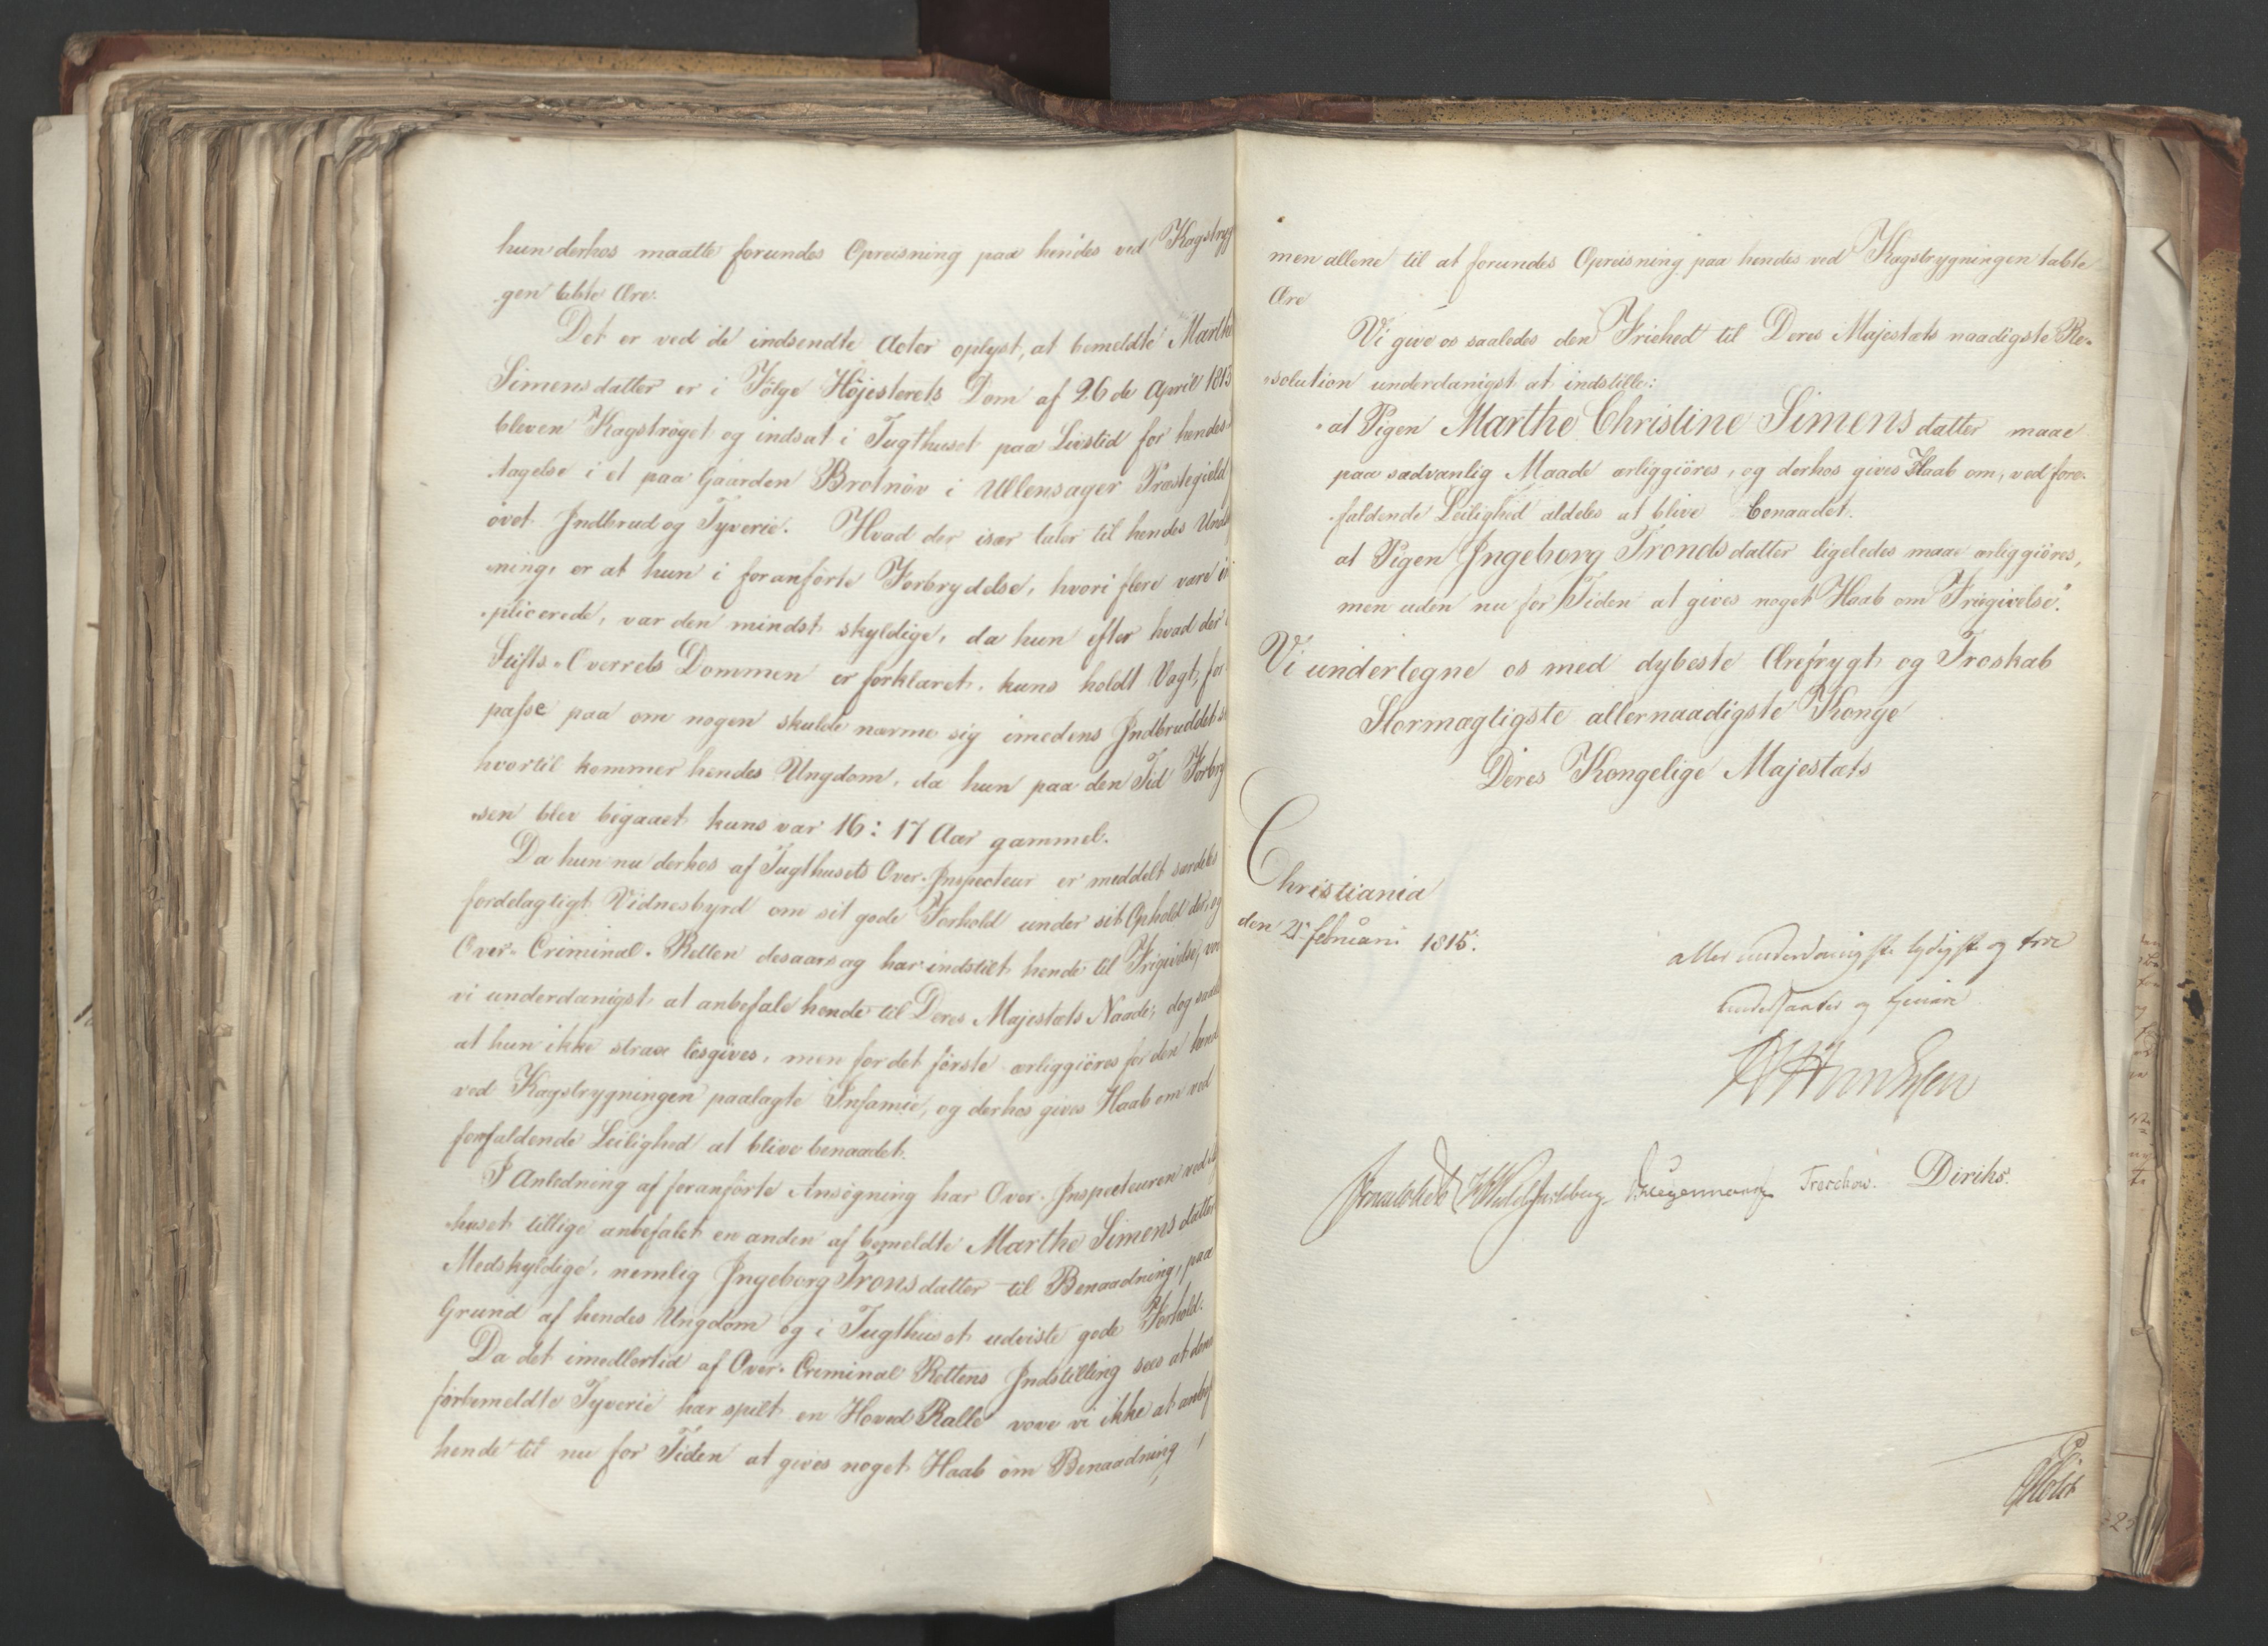 hun derhos maatte forundes Opreisning paa hendes ved Kagstryg
gen tabte Ære.
Det er ved de indsendte Acter oplyst, at bemeldte Marthe
Simensdatter er i Fölge Höjesterets Dom af 26de April 1813
bleven Kagströget og indsat i Tugthuset paa Livstid for hendes
tagelse i et paa Gaarden Brotnöv i Ullensager Præstegield
övet Indbrud og Tyverie. Hvad der især taler til hendes Und
ning, er at hun i foranförte Forbrydelse, hvori flere vare i
plicerede, var den mindst skyldige, da hun efter hvad der i
Stifts-Overrets Dommen er forklaret, kuns holdt Vagt, for
passe paa om nogen skulde nærme sig imedens Indbruddet s
hvortil kommer hendes Ungdom, da hun paa den Tid Forbry
sen blev begaaet kuns var 16: 17 Aar gammel.
Da hun nu derhos af Tugthusets Over-Inspecteur er meddelt særdeles
fordelagtigt Vidnesbyrd om sit gode Forhold under sit Ophold der, og
Over-Criminal-Retten desaarsag har indstilt hende til Frigivelse, vove
vi underdanigst at anbefale hende til Deres Majestæts Naade, dog saal
at hun ikke strax lösgives, men for det förste ærliggiöres for den hend
ved Kagstrygningen paalagte Infamie, og derhos gives Haab om ved
forefaldende Leilighed at blive benaadet.
I Anledning af foranförte Ansögning har Over-Inspecteuren ved
huset tillige anbefalet en anden af bemeldte Marthe Simensdatters
Medskyldige, nemlig Ingeborg Tronsdatter til Benaadning, paa
Grund af hendes Ungdom og i Tugthuset udviste gode Forhold.
Da det imedlertid af Over-Criminal Rettens Indstilling sees at denne
forbemeldte Tyverie har spilt en Hoved Ralle vove vi ikke at anbef
hende til nu for Tiden at gives noget Haab om Benaadning,
men allene til at forundes Opreisning paa hendes ved Kagstrygningen tabte
Ære
Vi give os saaledes den Friehed til Deres Majestæts naadigste Re-
solution underdanigst at indstille:
"at Pigen Marthe Christine Simensdatter maae
paa sædvanlig Maade ærliggiöres, og derhos gives Haab om, ved fore-
faldende Leilighed aldeles at blive benaadet.
at Pigen Ingeborg Trondsdatter ligeledes maae ærliggiöres,
men uden nu for Tiden at gives noget Haab om Friegivelse."
Vi undertegne os med dybeste Ærefrygt og Troskab
Stormægtigste allernaadigste Konge
Deres Kongelige Majestæts
Christiania
den 21 februari 1815.
aller underdanigste lydigste og troe
undersaatter og tienere
Sommerhielm Wedel Jarlsberg Hegermann Treschow. Diriks.